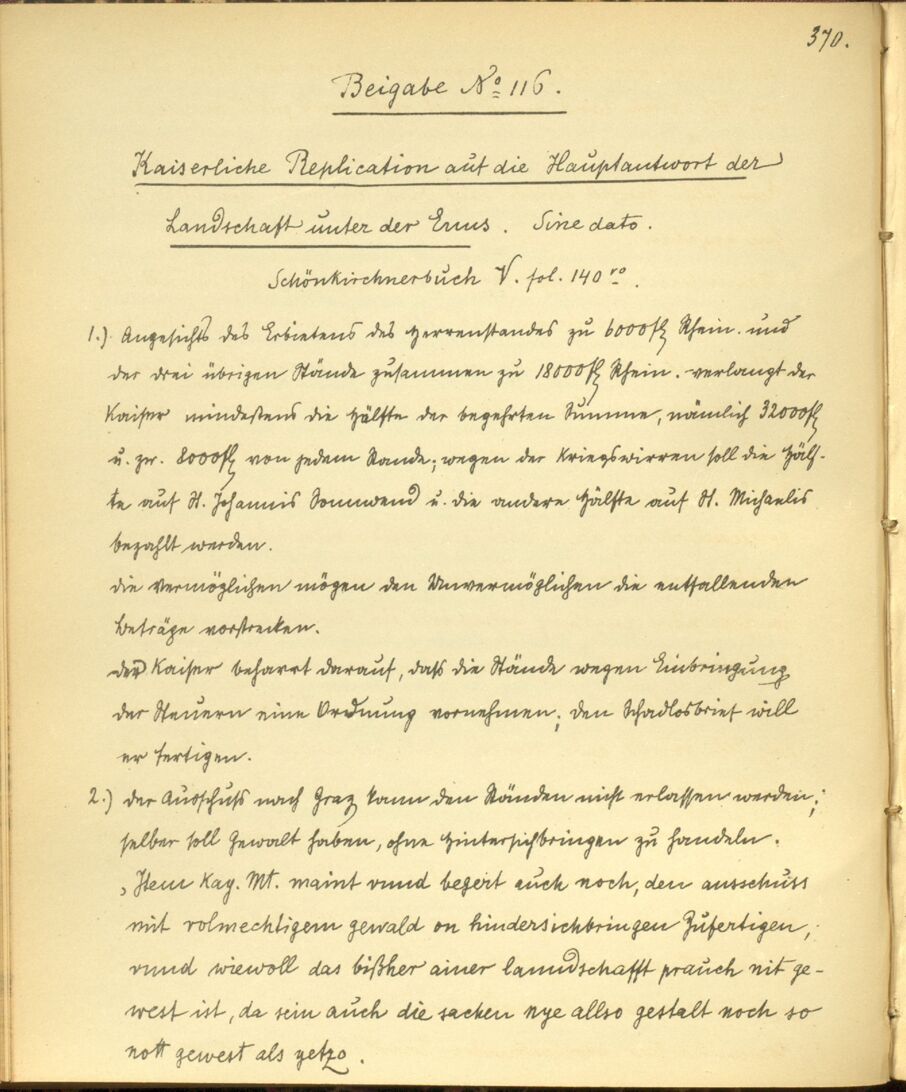 370.
Beigabe No 116.
Kaiserliche Replication auf die Hauptantwort der
Landschaft unter der Enns. Sine dato.
Schönkirchnerbuch V. fol. 140 vo.
1.) Angesichts des Erbietens des Herrenstandes zu 6000 fl Rhein. und
der drei übrigen Stände zusammen zu 18000 fl Rhein. verlangt der
Kaiser mindestens die Hälfte der begehrten Summe, nämlich 32000 fl
u. zw. 8000 fl von jedem Stande; wegen der Kriegswirren soll die Hälf-
te auf St. Johannis Sonnwend u. die andere Hälfte auf St. Michaelis
bezahlt werden.
Die Vermöglichen mögen den Unvermöglichen die entfallenden
Beträge vorstrecken.
Der Kaiser beharrt darauf, dass die Stände wegen Einbringung
der Steuern eine Ordnung vornehmen; den Schadlosbrief will
er fertigen.
2.) Der Ausschuss nach Graz kann den Ständen nicht erlassen werden;
selber soll Gewalt haben, ohne Hintersichbringen zu handeln.
„Item Kay. Mt. maint vnnd begert auch noch, den ausschuss
mit volmechtigem gewald on hindersichbringen Zufertigen,
vnnd wiewoll das bißher ainer lanndschafft prauch nit ge-
west ist, da sein auch die sachen nye allso gestalt noch so
nott gewest als yetzo.